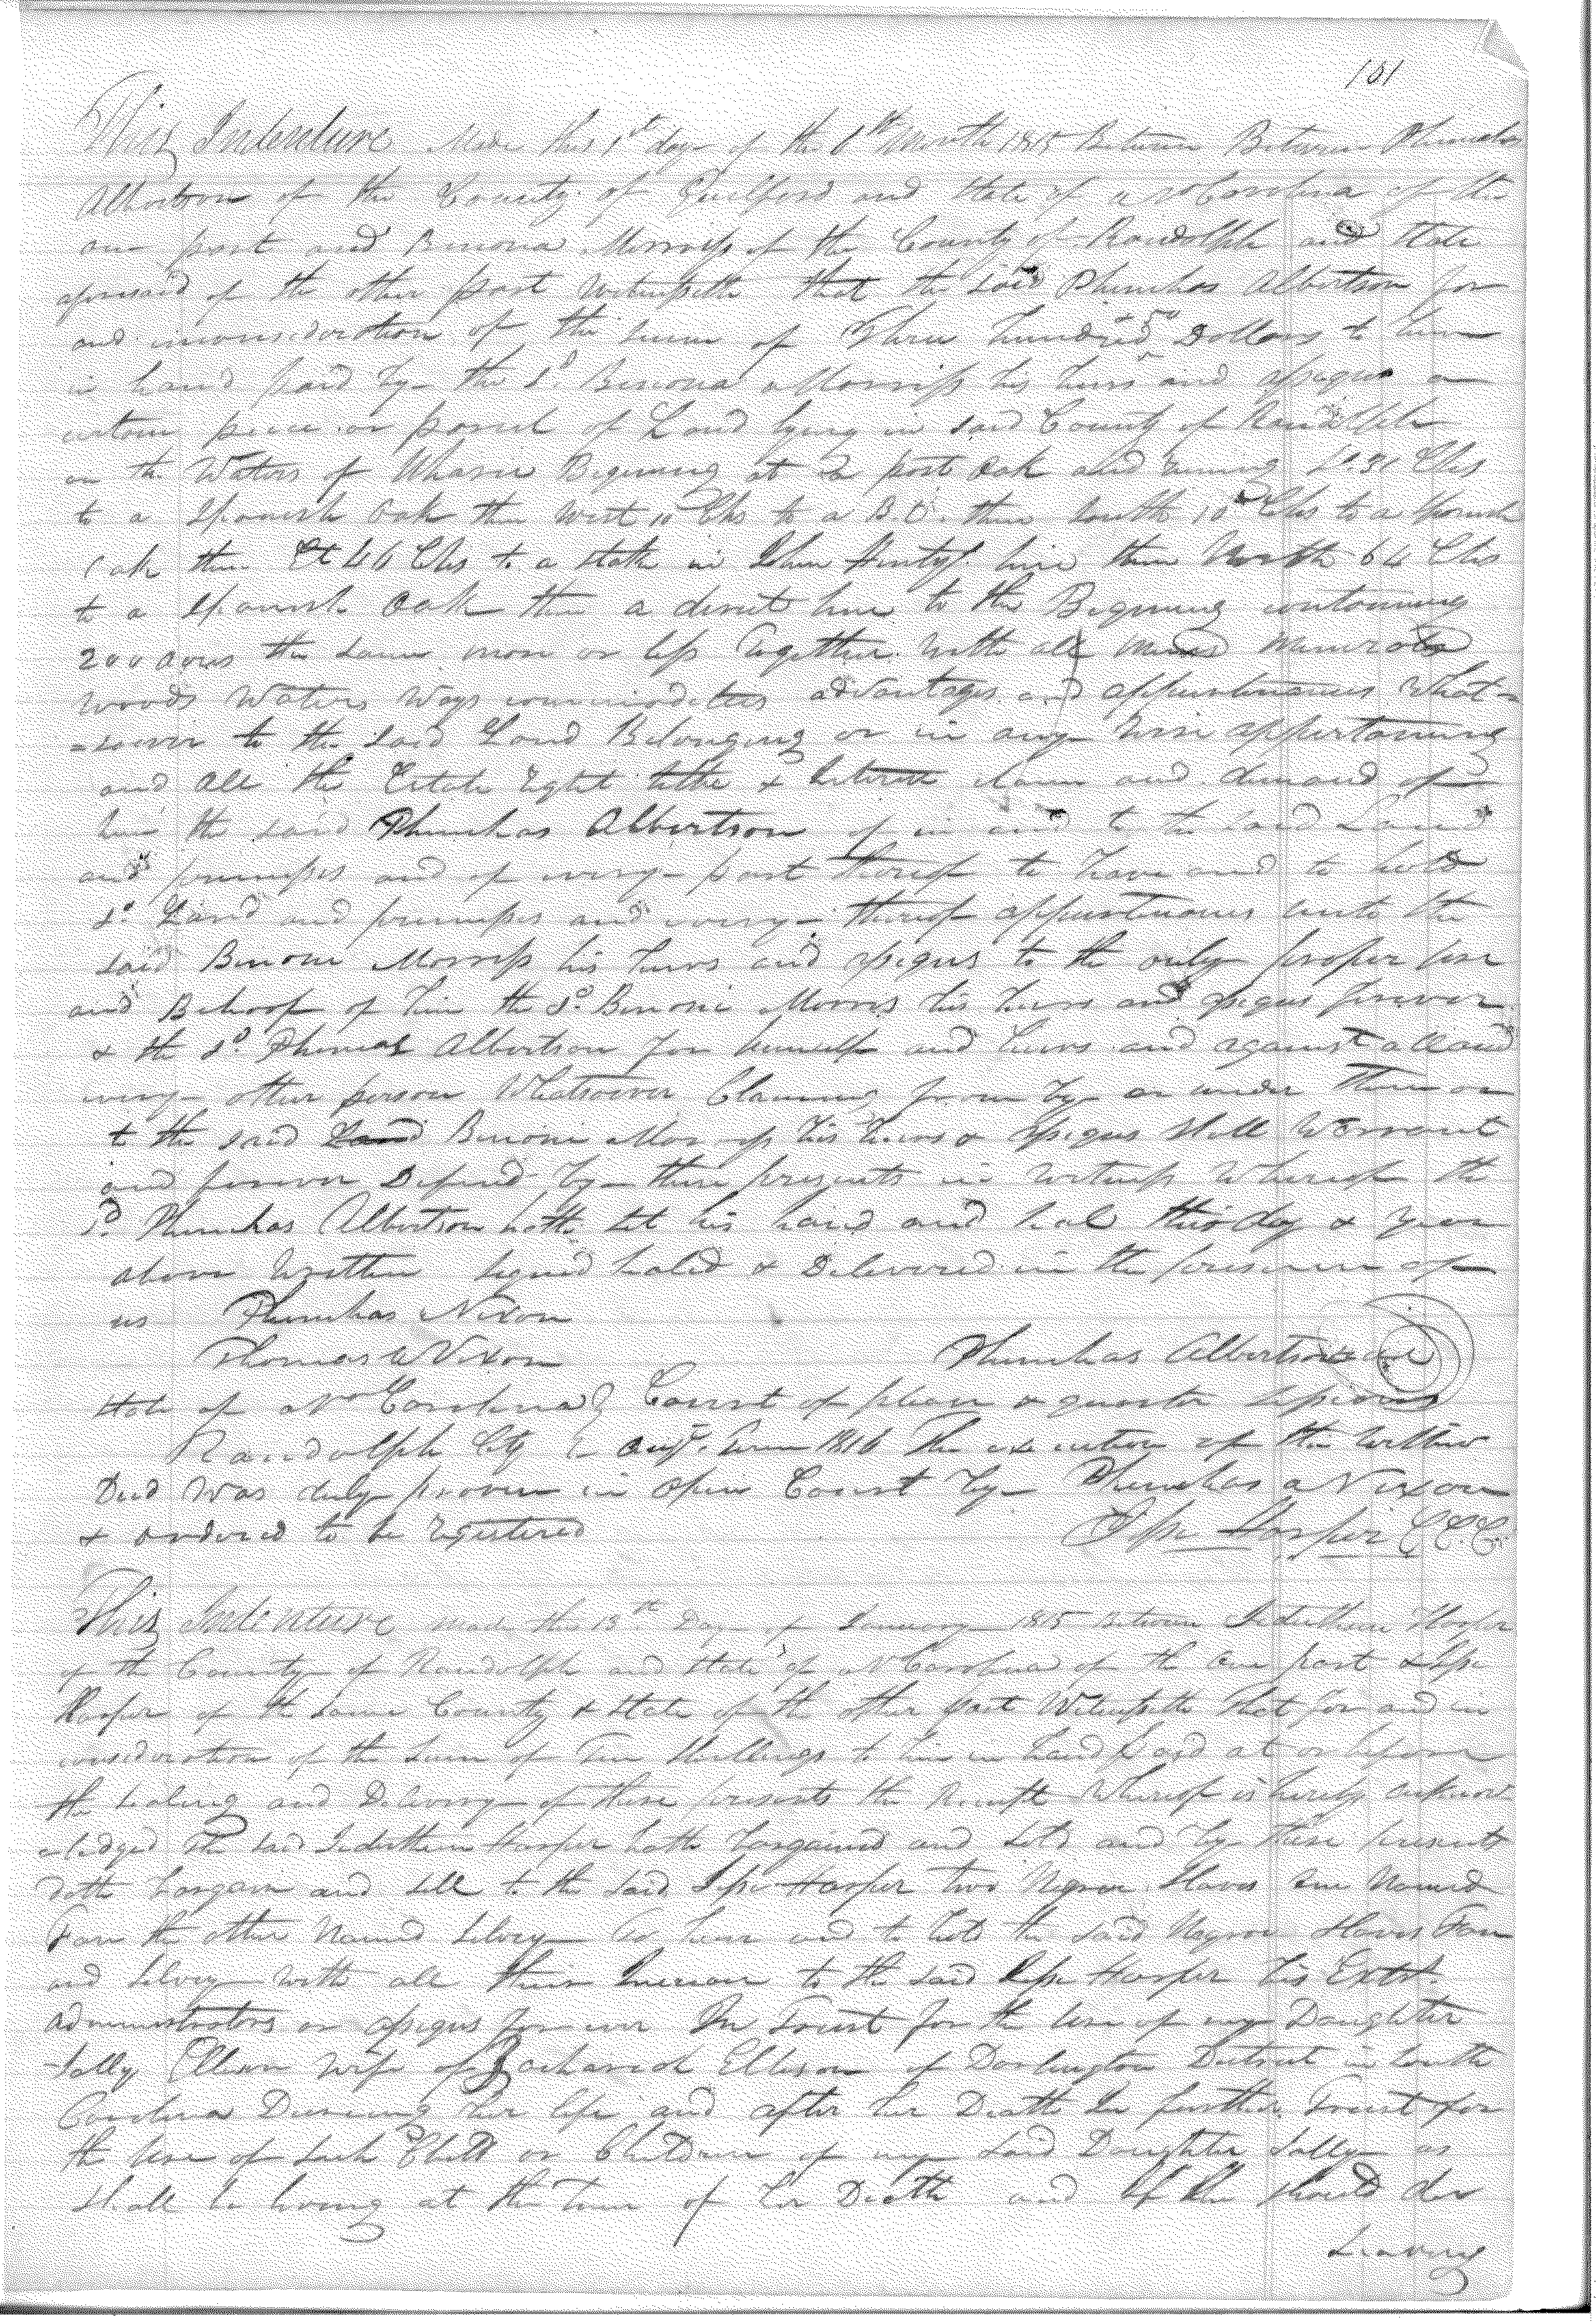 101
This Indenture Made this 1st day of the 8th Month 1815 Between Between Phinehas
Albertson of the County of Guilford and State of N Carolina of the
one part and Benona Morriss of the County of Randolph and State
aforesaid of the other part Witnesseth that the said Phinehas Albertson for
and inconsideration of the sum of Three hundred & 50 Dollars to him
in hand paid by the sd. Benona Morriss his heirs and assigns a
certain piece or parcel of Land lying in said County of Randolph
on the Waters of Uharie Begining at a post oak and runing So. 31 Chs
to a Spanish Oak then West 10 Chs to a B.O. then South 10 Chs to a Spanish
Oak then Et 46 Chs to a stake in John line then North 64 Chs
to a Spanish Oak then a direct line to the Begining containing
200 acres the same more or less Together With all mines minerals
woods Waters Ways commodities advantages and appurtenances What=
=soever to the said Land Belonging or in any wise appertaining
and all the Estate right title & Interest claim and demand of
him the said Phinehas Albertson of in and to the said Land
and premises and of every part thereof to have and to hold
sd. Land and premises and every thereof appurtenances unto the
said Benoni Morriss his heirs and assigns to the only proper use
and Behoof of him the sd. Benoni Morris his heirs and assigns forever
& the sd. Phinehas Albertson for himself and heirs and against all and
every other person Whatsoever Claiming from by or under them or
to the said Land Benoni Morriss his heirs & assigns Shall Warrant
and forever Defend by these presents in Witness Whereof the
sd. Phinehas Albertson hath set his hand and seal this day & year
above Written signed sealed & Delivered in the presence of
us Phinehas Nixon
Thomas Nixon Phinehas Albertson seal
State of No Carolina Court of pleas & quarter sessions
Randolph Cty Augt. Term 1816 The execution of the within
Deed Was duly proven in open Court by Phinehas Nixon
& ordered to be registered Jesse Harper C.C.C.
This Indenture made this 13th Day of January 1815 Between Jeduthun Harper
of the County of Randolph and State of N Carolina of the one part & Jesse
Harper of the same County & State of the other part Witnesseth that for and in
consideration of the sum of Ten Shillings to him in hand paid at or before
the sealing and Delivery of these presents the Receipt Whereof is hereby acknow
=ledged the said Jeduthun Harper hath bargained and sold and by these presents
doth bargain and sell to the said Jesse Harper two Negroe Slaves one Named
Fan the other Named Silvey To have and to hold the said Negroe Slaves Fan
and Silvey with all their Increase to the said Jesse Harper his Extrs.
administrators or assigns forever In Trust for the use of my Daughter
Sally Ellison wife of Zachariah Ellison of Darlington District in South
Carolina Dureing her life and after her Death In further Trust for
the use of such Child or Children of my said Daughter Sally as
shall be living at the time of her Death and if she should die
Leaving